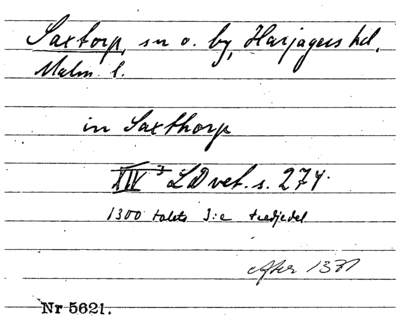 Saxtorp, sn o. by, Harjagers hd,
Malm. l.
in Saxthorp
XIV 3 LD vet. s. 274.
1300 talets 3:e tredjedel
After 1371
Nr 5621.